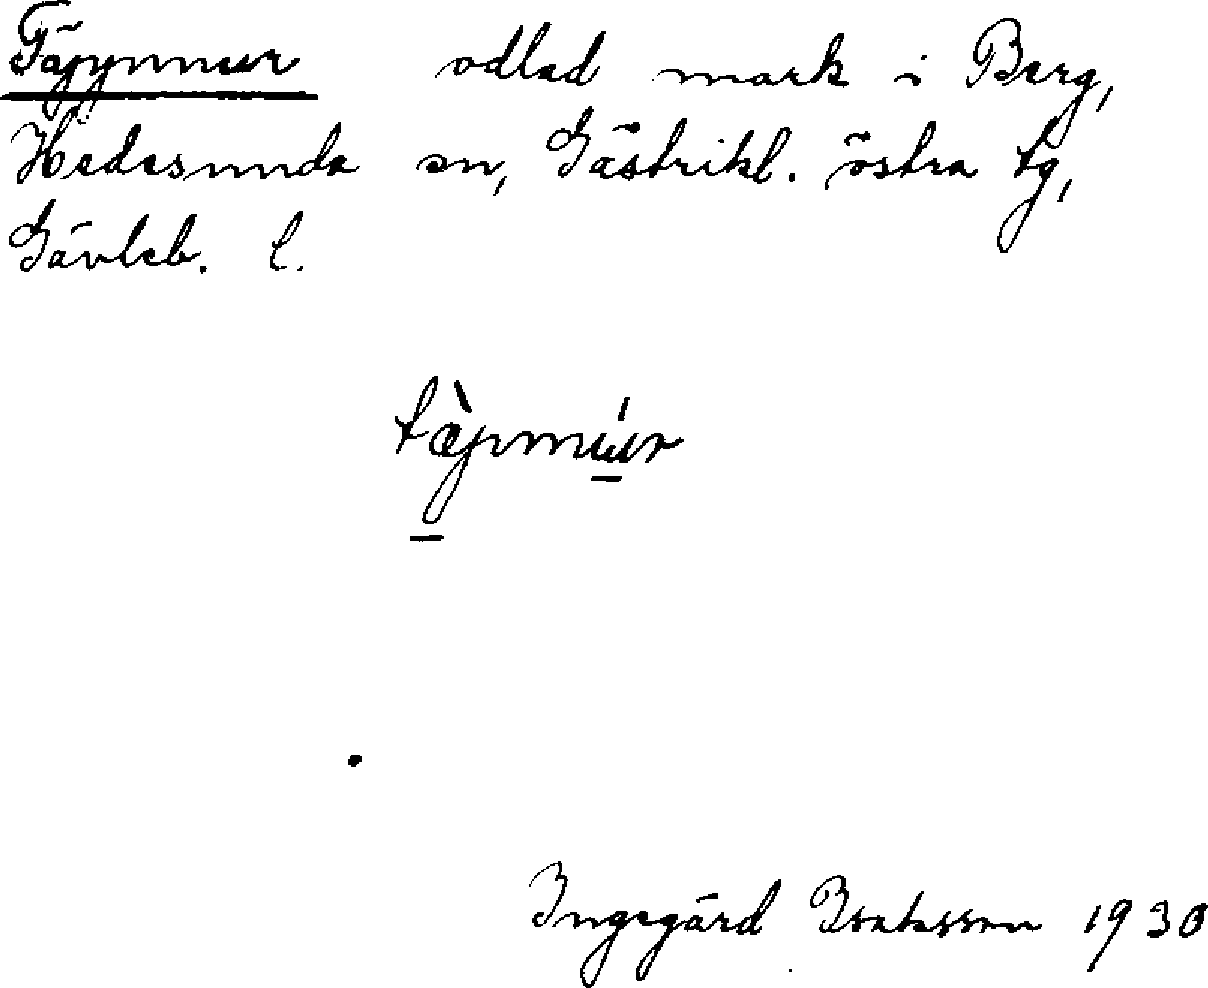 Täppmur odlad mark i Berg,
Hedesunda sn, Gästrikl. östra tg,
Gävleb. l.
tæ̀pmúur
Ingegärd 1930